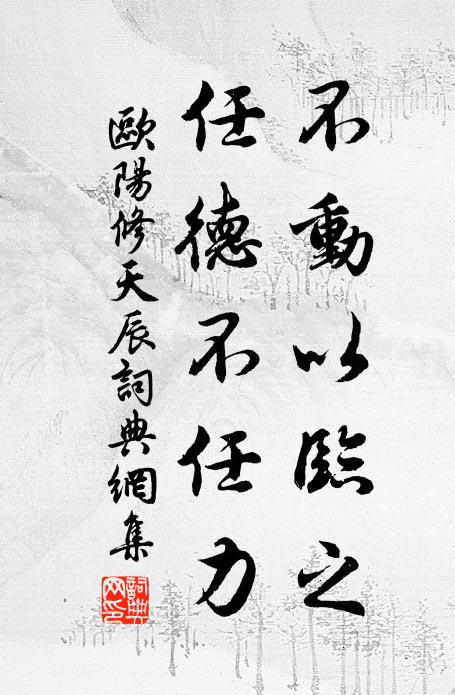 不動以臨之
任德不任力
歐陽修天辰詞典網集
詞典网印